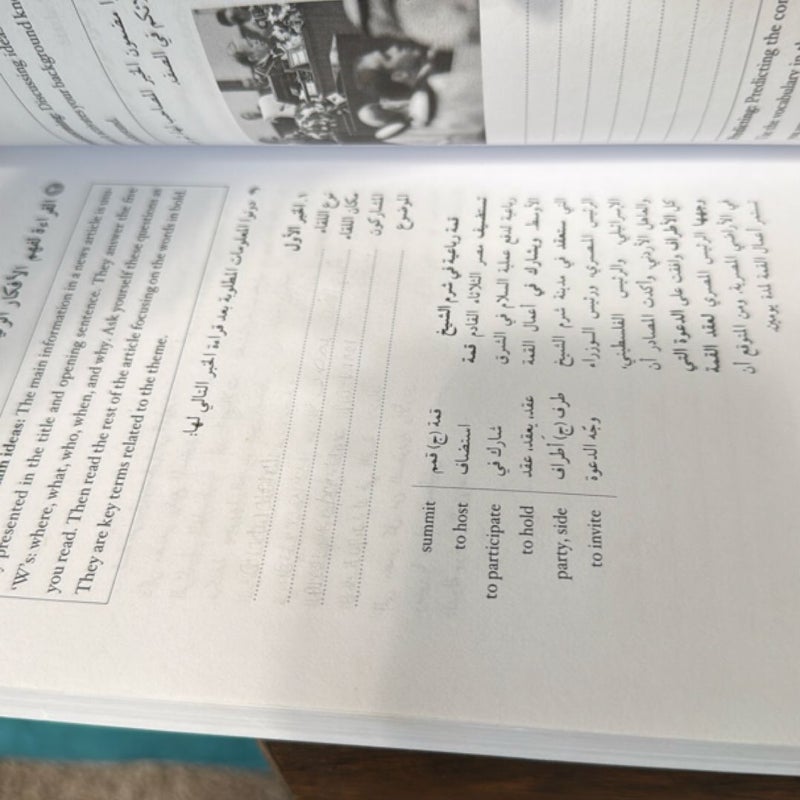 Discussing ideas
your background
Predicting: Predicting the
the vocabulary in
القراءة لفهم الأفكار
ideas: The main information in a news article is
presented in the title and opening sentence. They answer the five
'W's: where, what, who, when, and why. Ask yourself these questions as
you read. Then read the rest of the article focusing on the words in bold.
They are key terms related to the theme.
دونوا المعلومات المطلوبة بعد قراءة الخبر التالي لها:
١. الخبر الأول
نوع اللقاء
مكان اللقاء
المشاركون
الموضوع
قمة (ج) قمم summit
استضاف to host
شارك في to participate
عقد، يعقد، عقد to hold
طرف (ج) أطراف party, side
وجّه الدعوة to invite
قمة رباعية في شرم الشيخ
تستضيف مصر الثلاثاء القادم قمة
رباعية لدفع عملية السلام في الشرق
الأوسط ويشارك في أعمال القمة
التي ستعقد في مدينة شرم الشيخ
الرئيس المصري ورئيس الوزراء
الإسرائيلي والرئيس الفلسطيني،
والعاهل الأردني. وأكدت المصادر أن
كل الأطراف وافقت على الدعوة التي
وجهها الرئيس المصري لعقد القمة
في الأراضي المصرية. ومن المتوقع أن
تستمر أعمال القمة لمدة يومين.